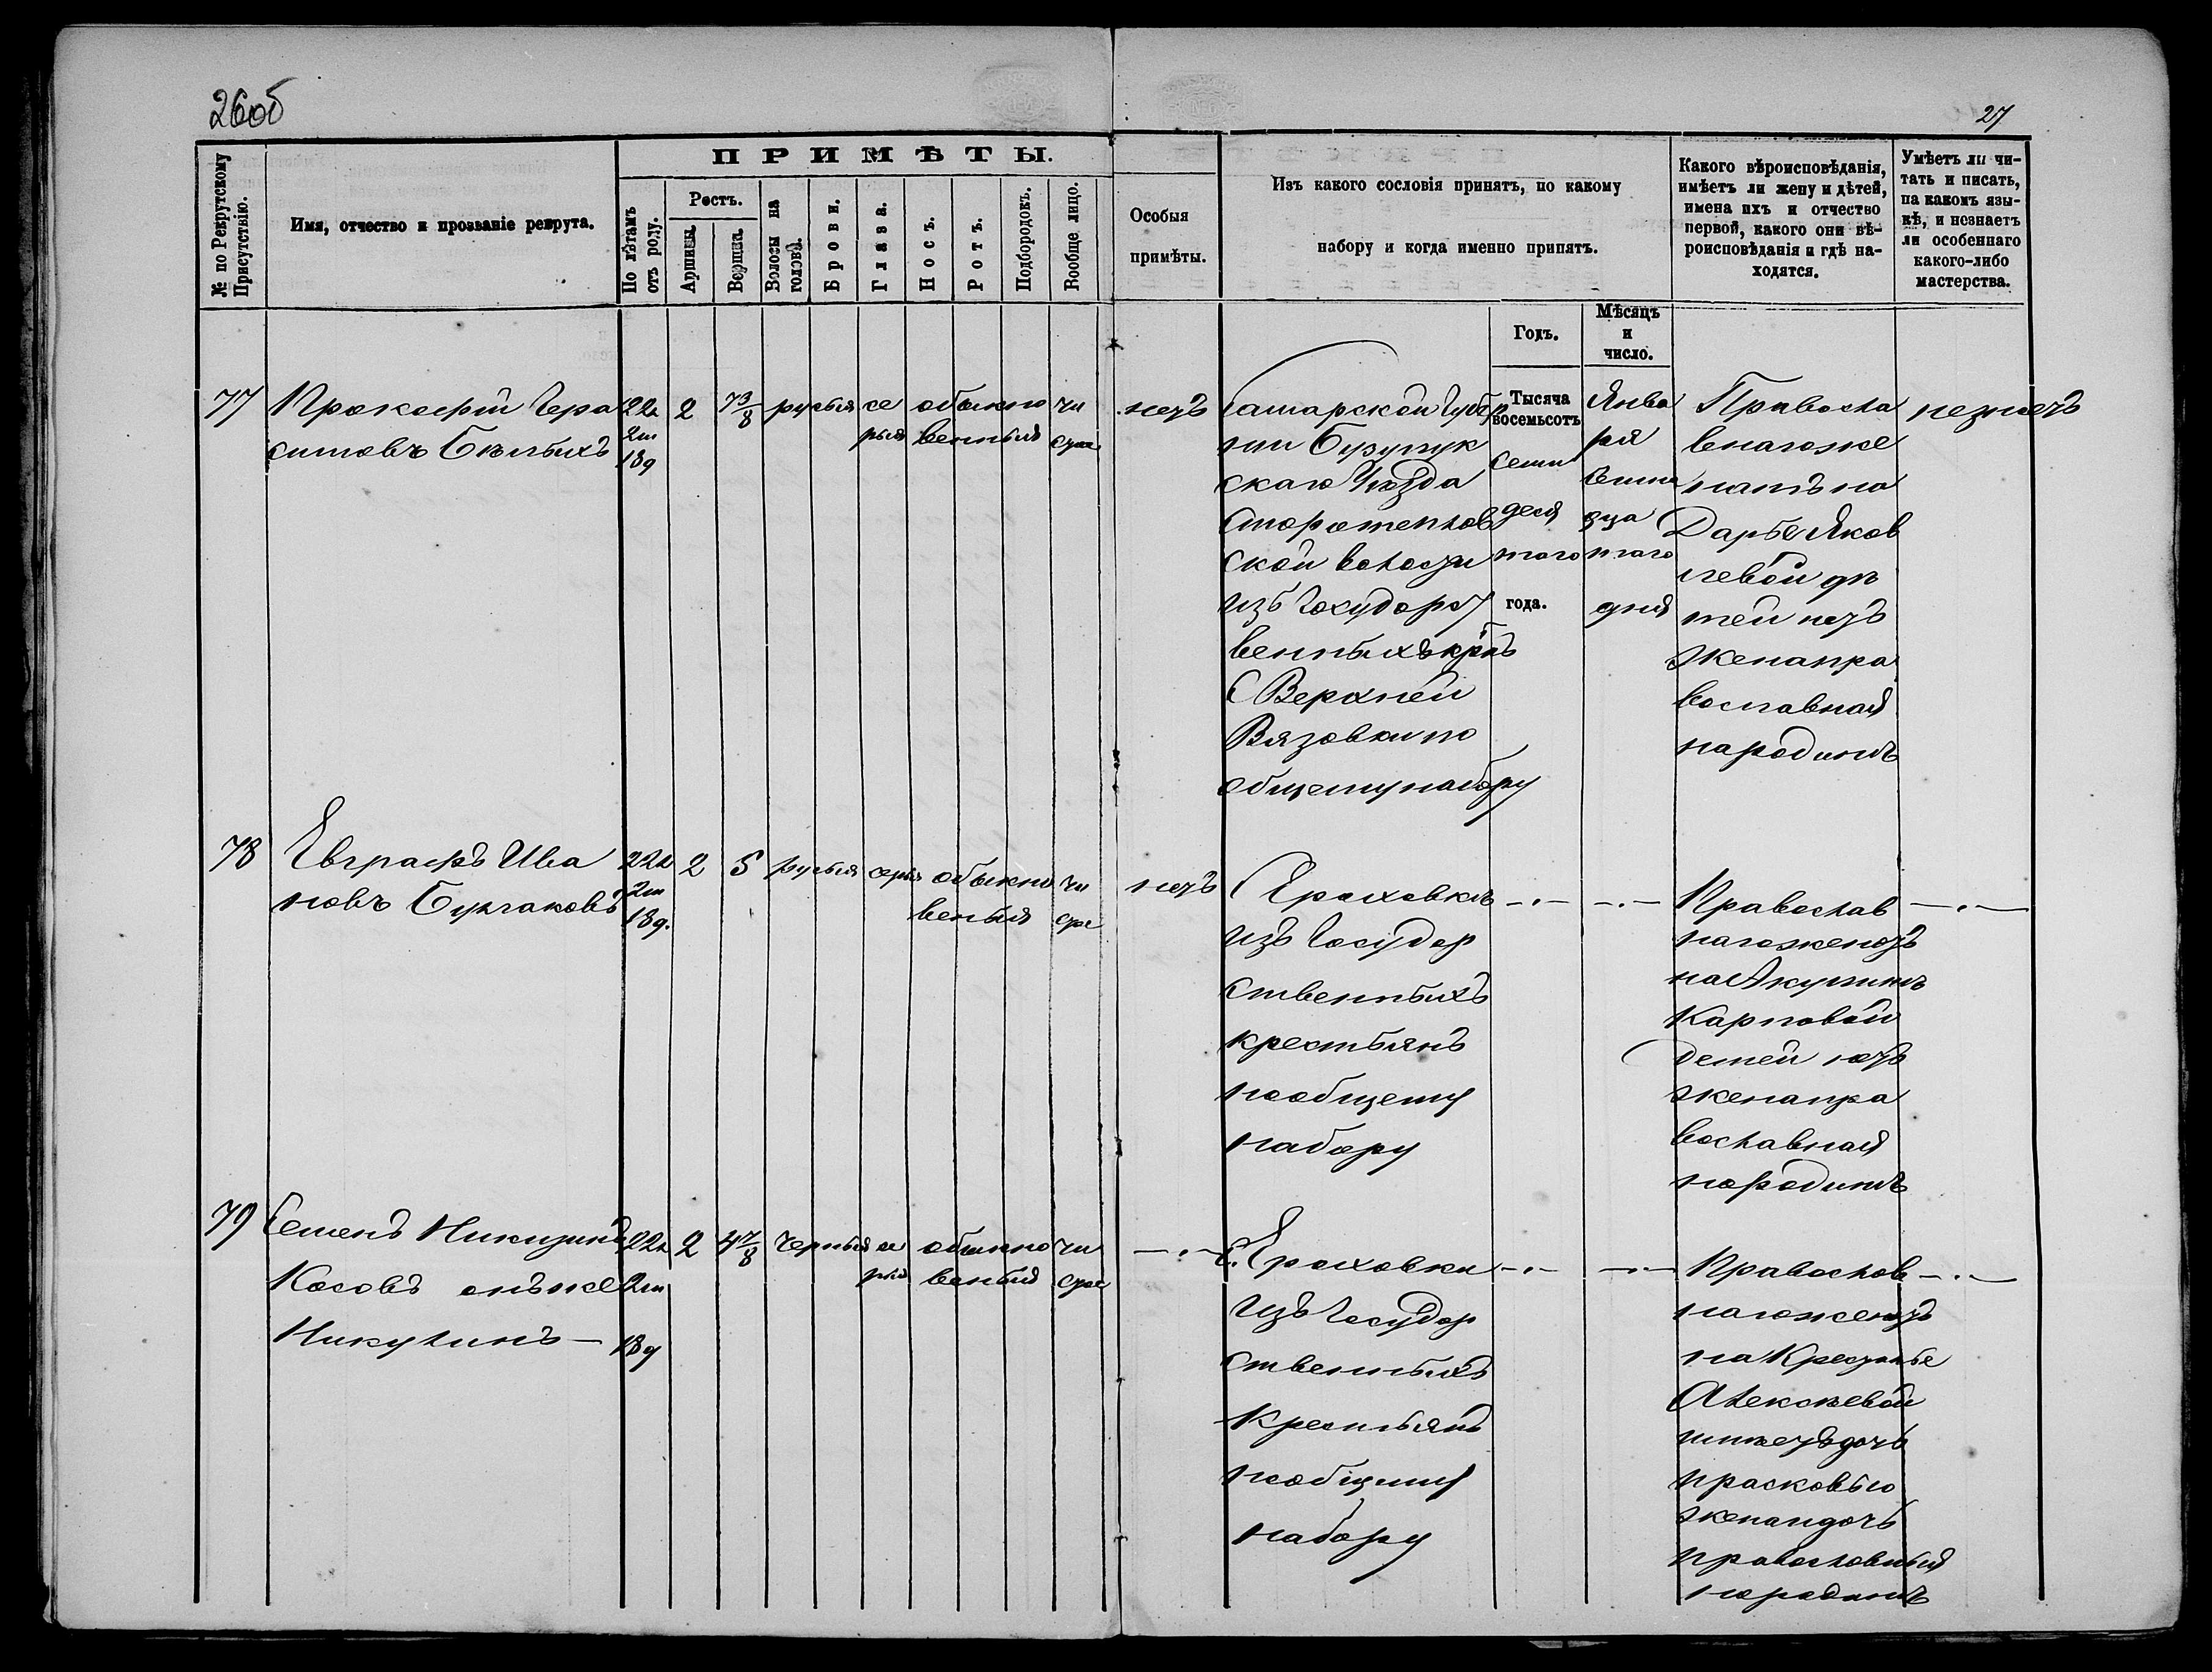 26об
27
ПРИМѢТЫ.
№ по Рекрутскому Присутствію.
Имя, отчество и прозваніе рекрута.
По лѣтамъ отъ роду.
Ростъ.
Аршины.
Вершки.
Волосы на головѣ.
Брови.
Глаза.
Носъ.
Ротъ.
Подбородокъ.
Вообще лицо.
Особыя
примѣты.
Изъ какого сословія принятъ, по какому
набору и когда именно принятъ.
Годъ.
Мѣсяцъ
и
число.
Какого вѣроисповѣданія,
имѣетъ ли жену и дѣтей,
имена ихъ и отчество
первой, какого они вѣ-
роисповѣданія и гдѣ на-
ходятся.
Умѣетъ ли чи-
тать и писать,
на какомъ язы-
кѣ, и незнаетъ
ли особеннаго
какого-либо
мастерства.
77
Прокофій Гера
симовъ Бѣлыхъ
22л
2м
18д
2
7 3/8
русыя
се
рыя
обыкно
венный
чи
стое
нетъ
Самарской Губер
ніи Бузулук
скаго Уѣзда
Старотепков
ской волости
изъ Государст
венныхъ крнъ
С Верхней
Вязовки по
общему набору
Тысяча
восемьсотъ
семи
деся
таго
года.
Янва
ря
двад
ца
таго
дня
Правосла
внаго же
натъ на
Дарье Яков
левой дѣ
тей нетъ
жена пра
вославная
на родинѣ
незнаетъ
78
Евграфъ Ива
новъ Булгаковъ
22л
2м
18д.
2
5
русыя
серыя
обыкно
веный
чи
стое
нетъ
С Ероховкѣ
изъ Государ
ственныхъ
крестьянъ
по общему
набору
Православ
наго женатъ
на Акулинѣ
Карповой
детей нетъ
жена пра
вославная
на родинѣ
79
Семенъ Никитинъ
Косовъ онъ же
Никулинъ
22л
2м
18д
2
4 7/8
черныя
се
рыя
обыкно
веный
чи
стое
С. Ероховки
изъ Государ
ственныхъ
Крестьянъ
по общему
набору
Православ
наго женатъ
на
Алексѣевой
имѣетъ дочь
Прасковью
жена и дочь
православныя
на родинѣ